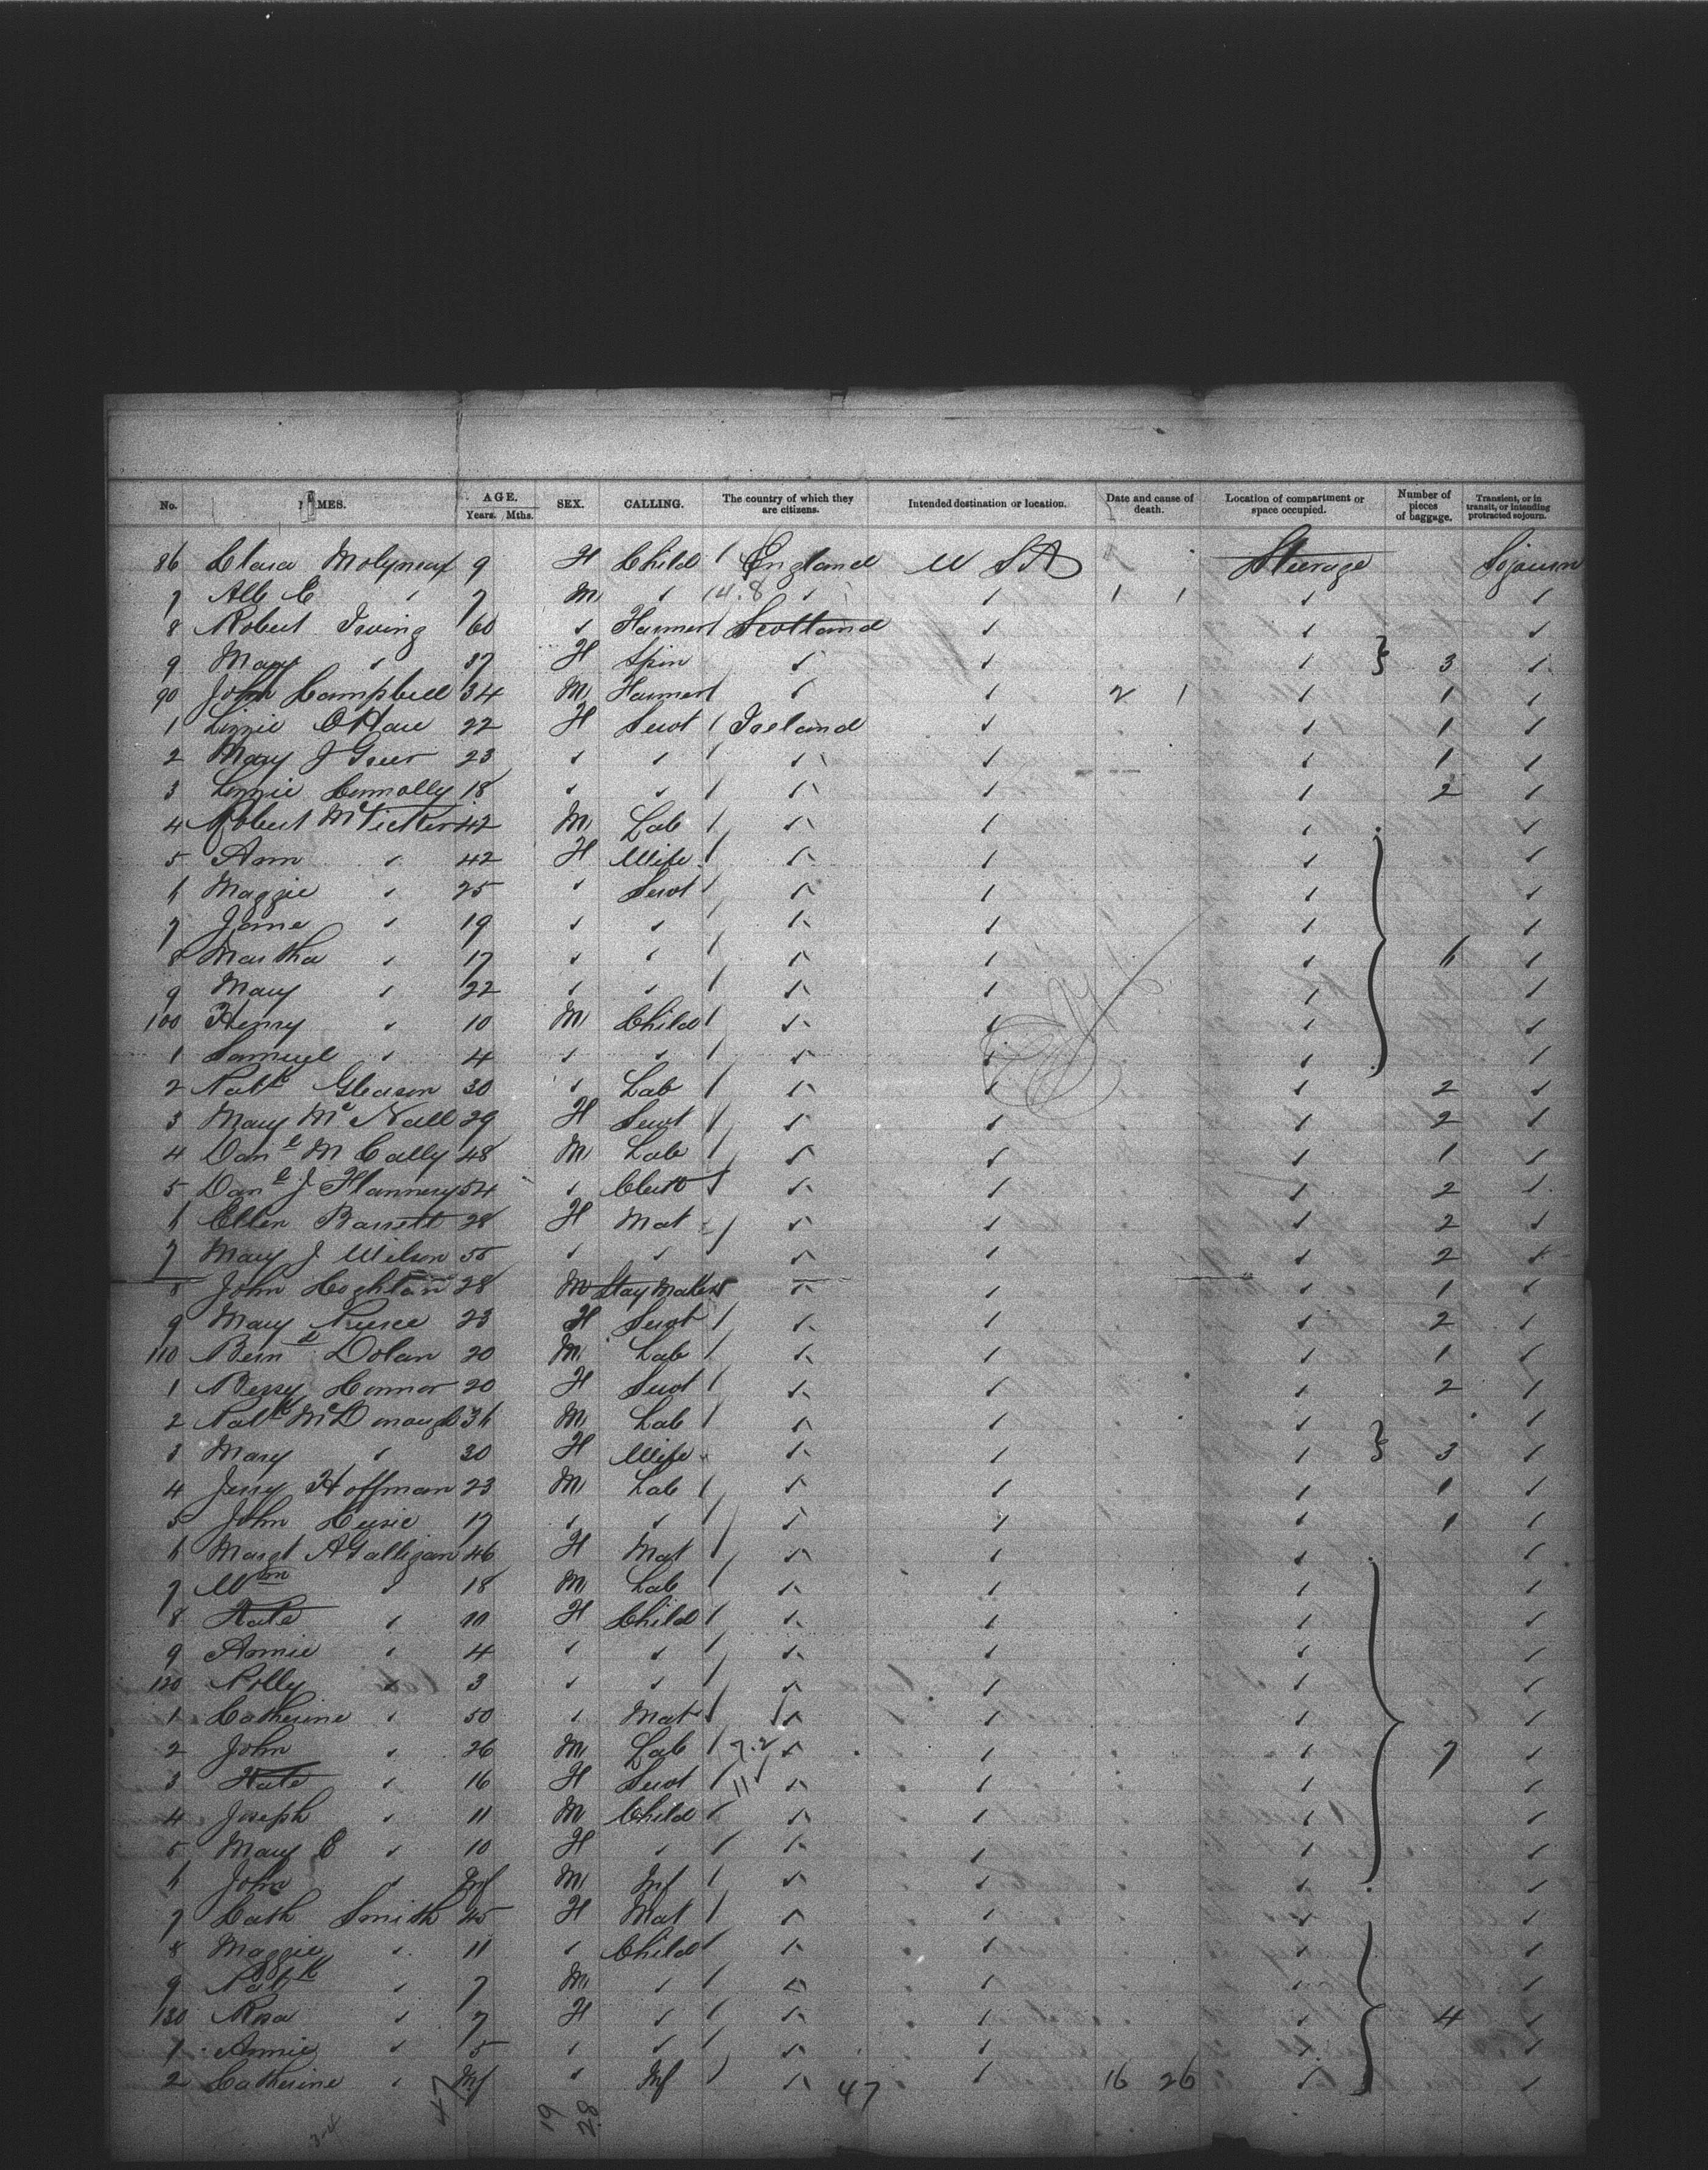 No. NAMES. AGE. Years. Mths. SEX. CALLING. The country of which they are citizens. Intended destination or location. Date and cause of death. Location of compartment or space occupied. Number of pieces of baggage. Transient, or in transit, or intending protracted sojourn.
86 Clara Molyneax 9 F Child England U S A Steerage Sojourn
7 Alb E " 7 M " 14.8 " 1 1
8 Robert Irving 60 " Farmer Scotland
9 Mary " 37 F Spin " 3
90 John Campbell 34 M Farmer " 2 1 1
1 Lizzie O'Hare 22 F Servt Ireland 1
2 Mary J Greer 23 " " " 1
3 Lizzie Connolly 18 " " " 2
4 Robert McVicker 42 M Lab "
5 Ann " 42 F Wife "
6 Maggie " 25 " Servt "
7 Jane " 19 " " "
8 Martha " 17 " " " 6
9 Mary " 22 " " "
100 Henry " 10 M Child "
1 Samuel " 4 " " "
2 Patk Gleason 30 " Lab " 2
3 Mary Mc Nall 29 F Servt " 2
4 Danl M Cally 48 M Lab " 1
5 Danl J Flannery 54 " " 2
6 Ellen Barrett 28 F Mat " 2
7 Mary J Wilson 55 " " " 2
8 John Coghlan 28 M Stay Maker " 1
9 Mary Pierce 23 F Servt " 2
110 Bernd Dolan 20 M Lab " 1
1 Bessy Connor 20 F Servt " 2
2 Patk McDonaugh 36 M Lab "
3 Mary " 30 F Wife " 3
4 Jerry Hoffman 23 M Lab " 1
5 John 17 " " " 1
6 Margt A Galligan 46 F Mat "
7 Wm " 18 M Lab "
8 Kate " 11 F Child "
9 Annie " 4 " " "
120 Polly " 3 " " "
1 Catherine " 50 " Mat "
2 John " 26 M Lab 7.2 " 7
3 Kate " 16 F Servt 11 "
4 Joseph " 11 M Child "
5 Mary E " 10 F " "
6 John " Inf M Inf "
7 Cath Smith 45 F Mat "
8 Maggie " 11 " Child "
9 Patk " 7 M " "
130 Rosa " 7 F " " 4
1 Annie " 5 " " "
2 Catherine " Inf " Inf " 47 16 26
47 19 28